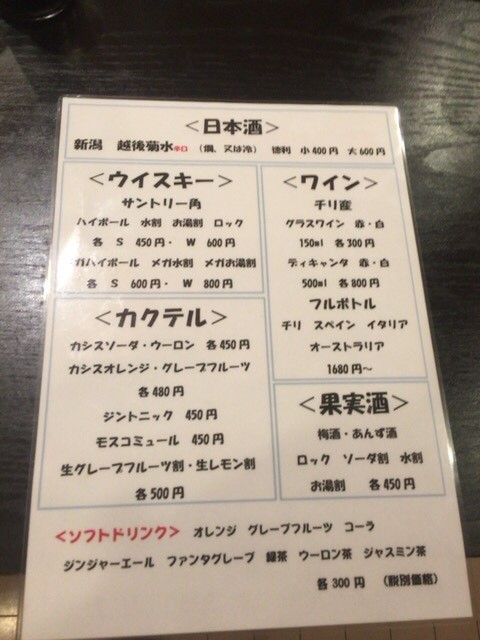 <日本酒>
新潟 越後菊水辛口 (燗、又は冷) 徳利 小400円 大600円
<ウイスキー>
サントリー角
ハイボール 水割 お湯割 ロック
各 S 450円・ W 600円
ガハイボール メガ水割 メガお湯割
各 S 600円・ W 800円
<ワイン>
チリ産
グラスワイン 赤・白
150ml 各300円
ディキャンタ 赤・白
500ml 各800円
フルボトル
チリ スペイン イタリア
オーストラリア
1680円~
<カクテル>
カシスソーダ・ウーロン 各450円
カシスオレンジ・グレープフルーツ
各480円
ジントニック 450円
モスコミュール 450円
生グレープフルーツ割・生レモン割
各500円
<果実酒>
梅酒・あんず酒
ロック ソーダ割 水割
お湯割 各450円
<ソフトドリンク> オレンジ グレープフルーツ コーラ
ジンジャーエール ファンタグレープ 緑茶 ウーロン茶 ジャスミン茶
各300円 (税別価格)